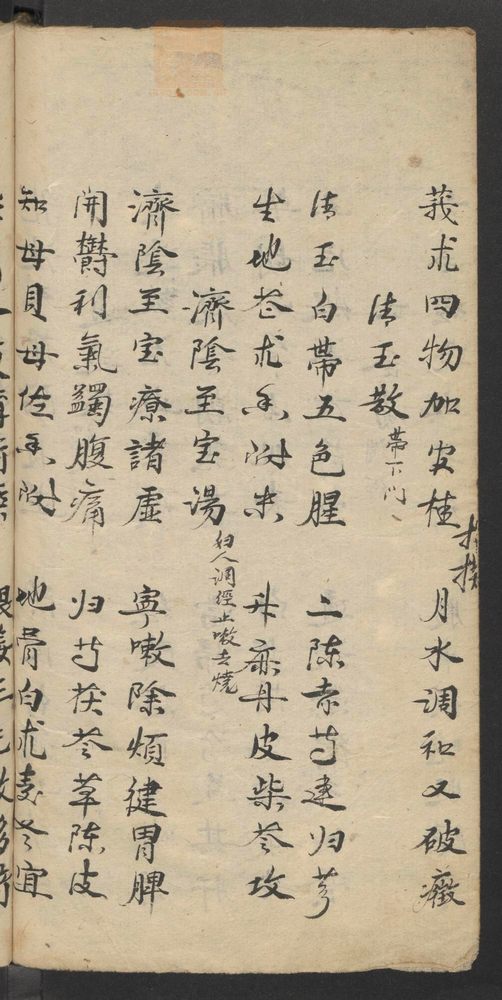 莪朮四物加官桂　月水调和又破癥
清玉散 帶下门
清玉白帶五色腥　二陈赤芍連归芎
生地苍朮香附米　升麻丹皮柴芩攻
濟陰至宝湯 妇人调經止嗽去燒
濟陰至宝療諸虛　寧嗽除煩健胃脾
開鬱利氣蠲腹痛　归芍茯苓草陈皮
知母貝母佐香附　地骨白朮麦冬宜